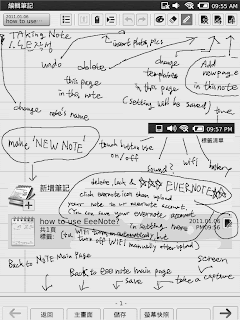 編輯筆記
09:55 AM
2011.01.06
how to use
TAKING Note
insert photos, pics
undo
delete
this page
in this note
change
templates
in this page
(setting will be saved)
Add
new page
in this note
time
change
note's name
09:57 PM
標籤清單
make "NEW NOTE"
touch button use
on/off
sound?
wifi
battery
新增筆記
delete, lock &
EVERNOTE
click evernote icon then upload
your note to ur evernote account.
(You can save your evernote account
in setting menu
how to use EeeNote?
2011.01.06
共1頁
PM09:56
標籤:
WIFI turn in automatically but
turn off WIFI manually after upload)
Back to NOTE Main Page
Back to EEE note main page
save
screen
take a capture
- 1 -
返回
主畫面
儲存
螢幕快照